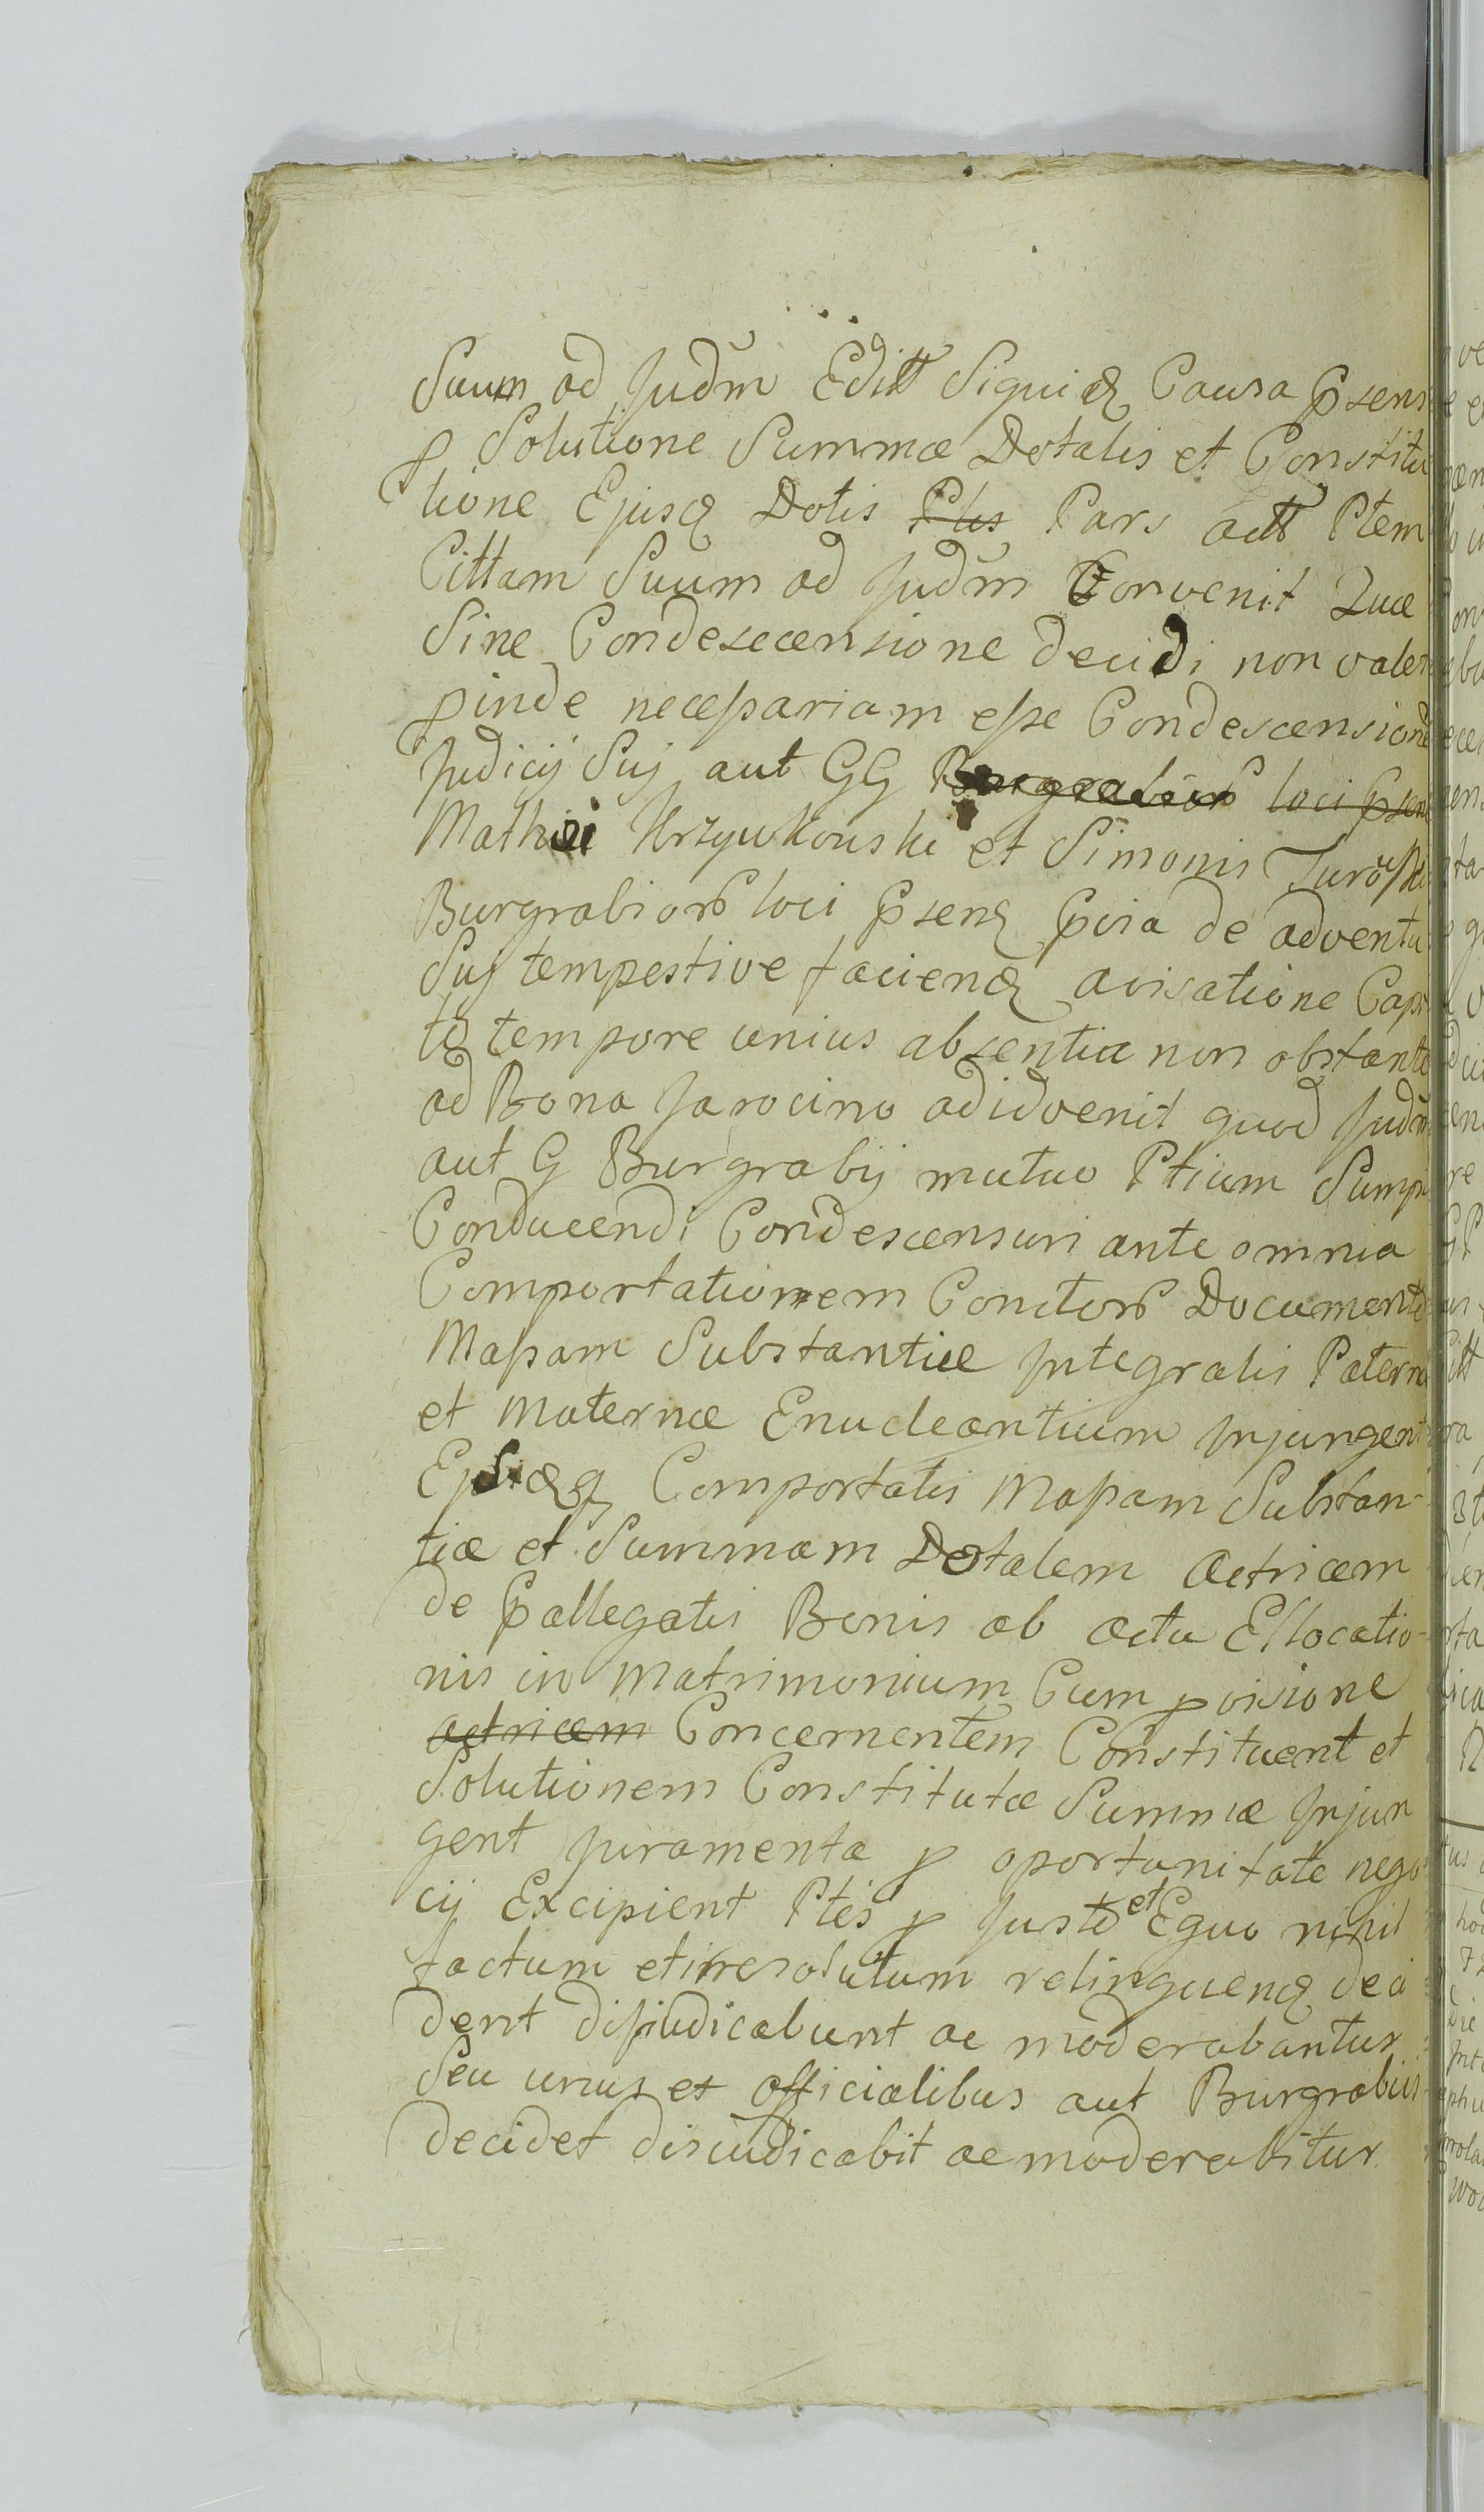 Suum ad Judm Editt Siquidꝫ Causa Psens
p Solutione Summæ Dotalis et Constitu
tione Ejusdꝫ Dotis Ptis Pars actt Ptem
Cittam Suum ad Judm Convenit Quæ
Sine Condescensione decidi non valet
pinde necessariam esse Condescensione
Judicij Suj aut GG Burgrabior loci psen
Mathei Krzywkowski et Simonis Turoski
Burgrabior loci Psenꝫ Pvia de adventu
Suj tempestive faciendꝫ avisatione Cap
to tempore unius absentia non obstante
ad Bona Jarocino adidvenit quod Judm
aut G Burgrabij mutuo Ptium Sumpt
Conducendi Condescensuri ante omnia
Comportationem Conctor Documento
Massam Substantiæ Integralis Paternæ
et Maternæ Enucleantium Injungent
Ejsqꝫ Comportatis Massam Substan-
tiæ et Summam Dotalem Actricem
de Pallegatis Bonis ab actu Ellocatio-
nis in Matrimonium Cum pvisione
actricem Concernentem Constituent et
Solutionem Constitutæ Summæ Injun
gent Juramenta p oportunitate nego
cij Excipient Ptes p Justo et Equo nihil
factum et irresolutum relinquendꝫ deci
dent disjudicabunt ac moderabantur
Seu unus ex officialibus aut Burgrabiis
decidet disiudicabit ac moderabitur